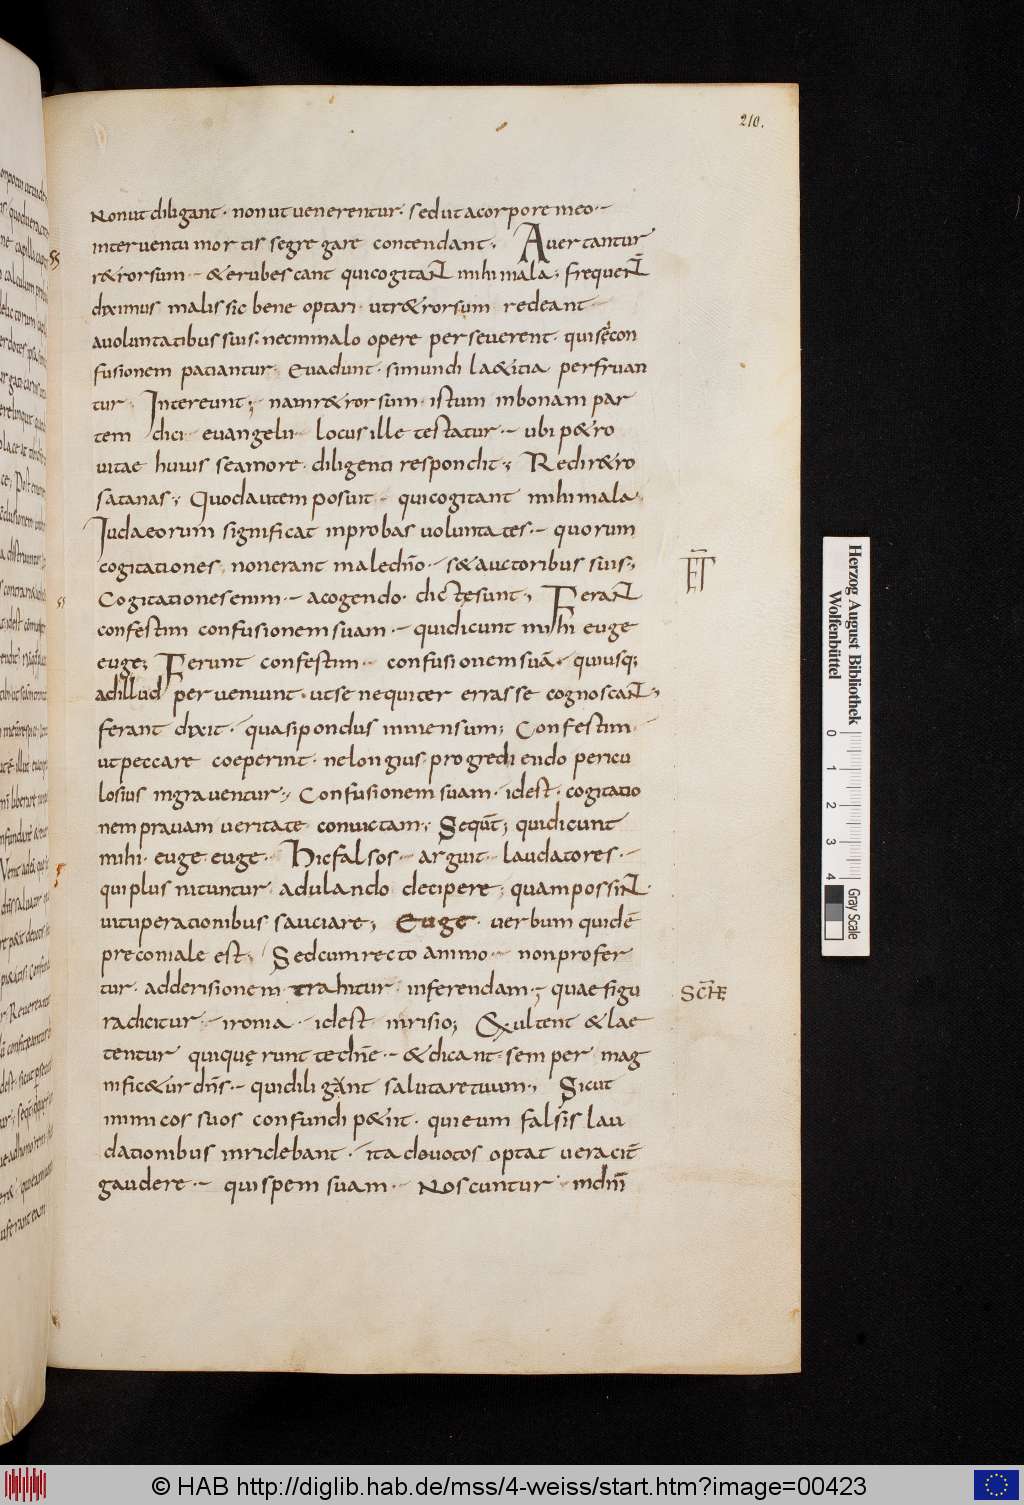 210.
Non ut diligant · non ut uenerentur · sed ut a corpore meo ·
interuentu mortis segregare contendant · Auertantur
r&rorsum · & erubescant qui cogitant mihi mala ; frequent̄
diximus malis sic bene optari · ut r&rorsum redeant
a uoluntatibus suis ; nec in malo opere perseuerent · qui sęcon
fusionem patiantur · Euadunt · si mundi la&itia perfruan
tur · Intereunt ; nam r&rorsum · istum in bonam par
tem dici · euangelii · locus ille testatur · ubi p&ro
uitae huius se amore · diligenti respondit ; Redi r&ro
satanas ; Quod autem posuit · qui cogitant mihi mala ·
Iudaeorum significat inprobas uoluntates · quorum
cogitationes non erant male dn̄o · s& auctoribus suis ;
Cogitationes enim · a cogendo · dictę sunt ; Ferant
confestim confusionem suam · qui dicunt mihi euge
euge ; Ferunt confestim · confusionem suā · qui usq;
ad illud perueniunt · ut se nequiter errasse cognoscant ;
ferant dixit · quasi pondus inmensum ; Confestim ·
ut peccare coeperint · ne longius progrediendo pericu
losius ingrauentur ; Confusionem suam · idest · cogitatio
nem prauam ueritate conuictam ; Sequit̄ ; qui dicunt
mihi · euge euge · Hic falsos · arguit · laudatores ·
qui plus nituntur adulando decipere ; quam possint ·
uituperationibus sauciare ; Euge · uerbum quidē
preconiale est ; Sed cum recto animo · non profer
tur · ad derisionem trahitur inferendam ; quae figu
ra dicitur · ironia · idest inrisio ; Exultent & lae
tentur qui quęrunt te dn̄e · & dicant · semper mag
nific&ur dn̄s · qui diligant salutare tuum ; Sicut
inimicos suos confundi p&iit · qui eum falsis lau
dationibus inridebant · ita deuotos optat ueracit̄
gaudere · qui spem suam · Noscuntur · in dn̄m
Herzog August Bibliothek
Wolfenbüttel
0 1 2 3 4
Gray Scale
© HAB http://diglib.hab.de/mss/4-weiss/start.htm?image=00423